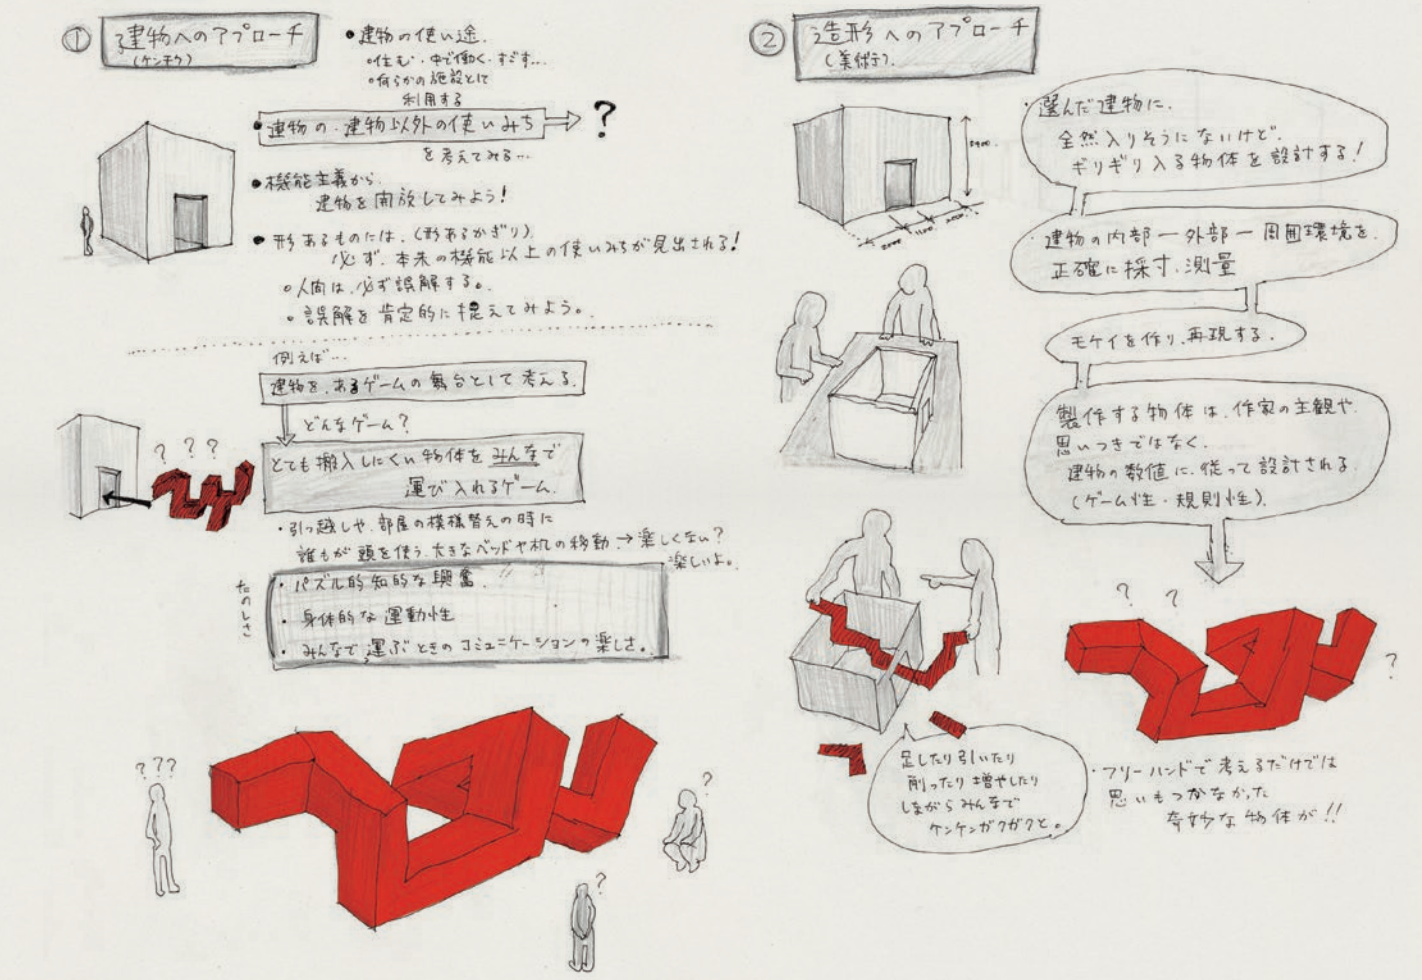 ①
建物へのアプローチ
(ケンチク)
• 建物の使い途.
◦住む・中で働く・すごす…
◦何らかの施設として
利用する
• 建物の・建物以外の使いみち
?
を考えてみる…
• 機能主義から.
建物を開放してみよう!
• 形あるものには.(形あるかぎり)
必ず.本来の機能以上の使いみちが見出される!
◦人間は.必ず誤解する。
◦誤解を肯定的に捉えてみよう。
例えば…
建物を.あるゲームの舞台として考える.
どんなゲーム?
? ? ?
とても搬入しにくい物体をみんなで
運び入れるゲーム.
・引っ越しや.部屋の模様替えの時に
誰もが頭を使う.大きなベッドや机の移動→楽しくない?
楽しいよ。
たのしさ
・パズル的知的な興奮.
・身体的な運動性
・みんなで運ぶときのコミュニケーションの楽しさ。
???
?
?
②
造形へのアプローチ
(美術).
・選んだ建物に.
全然入りそうにないけど.
ギリギリ入る物体を設計する!
・建物の内部ー外部ー周囲環境を.
正確に採寸.測量
モケイを作り.再現する.
製作する物体は.作家の主観や.
思いつきではなく.
建物の数値に.従って設計される.
(ゲーム性・規則性).
? ?
?
足したり引いたり
削ったり増やしたり
しながらみんなで
ケンケンガクガクと。
・フリーハンドで考えるだけでは
思いもつかなかった
奇妙な物体が!!